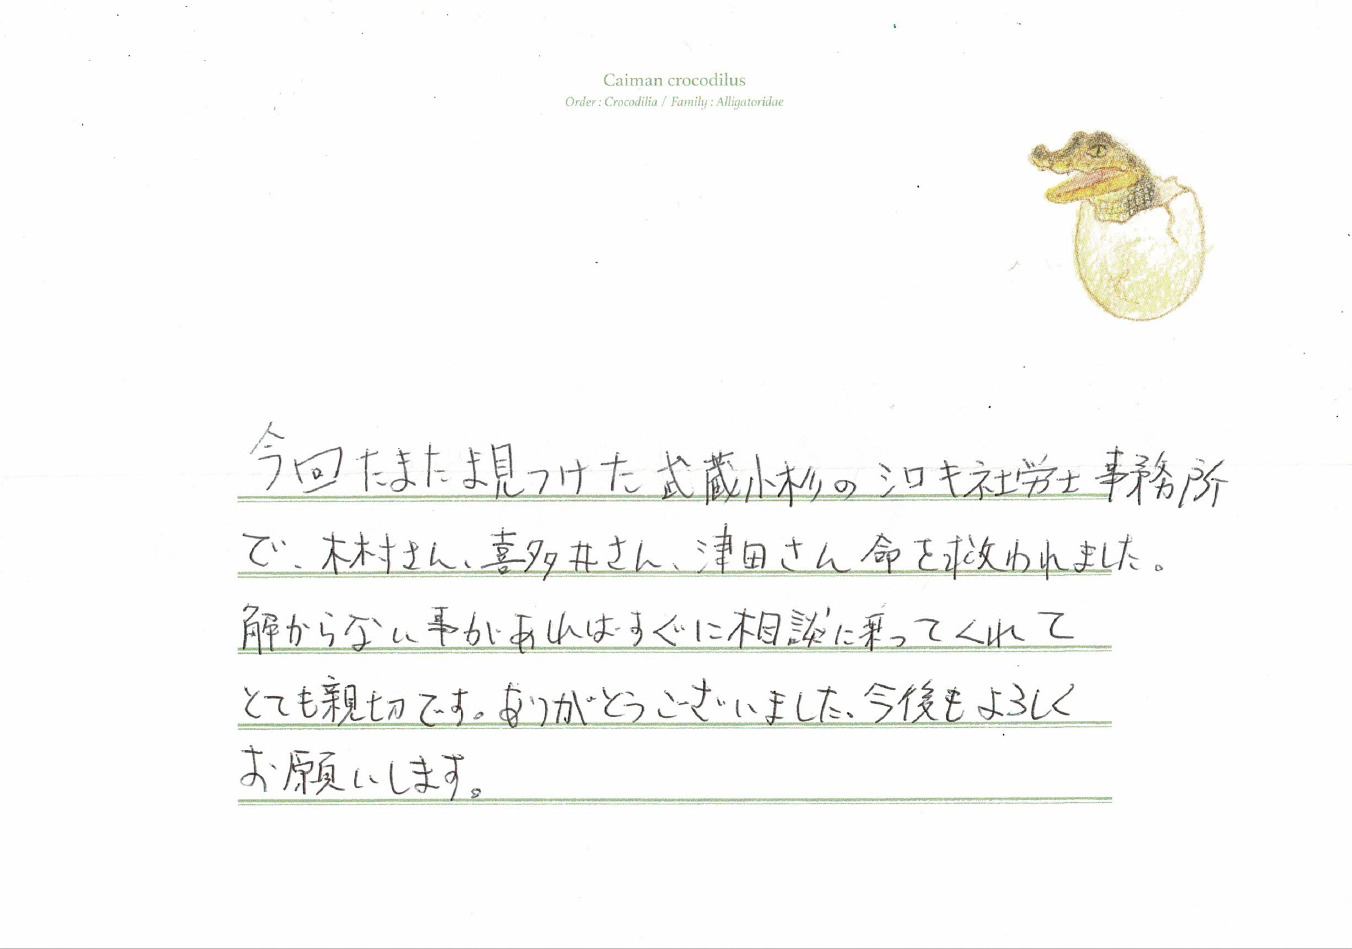 Caiman crocodilus
Order : Crocodilia / Family : Alligatoridae
今回たまたま見つけた武蔵小杉のシロキ社労士事務所
で、木村さん、喜多井さん、津田さん命を救われました。
解からない事があればすぐに相談に乗ってくれて
とても親切です。ありがとうございました、今後もよろしく
お願いします。